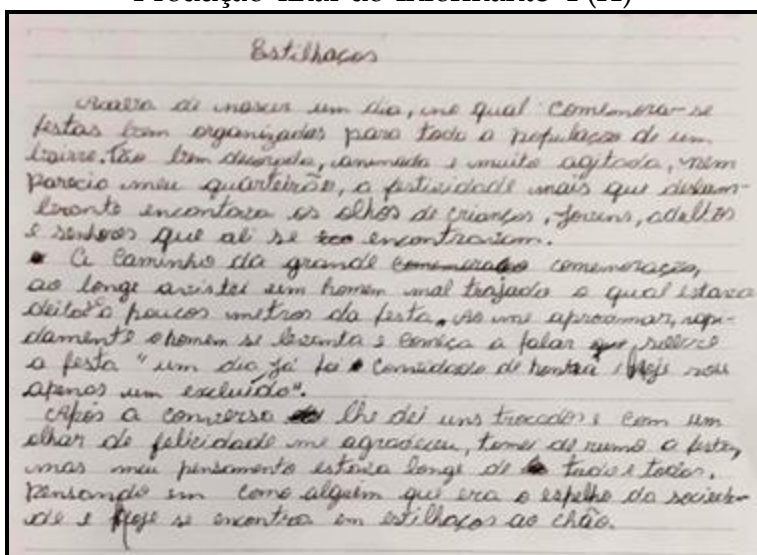 Estilhaços
Acaba de nascer um dia, no qual comemora-se
festas bem organizadas para toda a população de um
bairro. Tão bem decorada, animada e muito agitada, nem
parecia meu quarteirão, a festividade mais que deslum-
brante encantava os olhos de crianças, jovens, adultos
e senhores que ali se encontravam.
A caminho da grande comemoração,
ao longe avistei um homem mal trajado o qual estava
deitado a poucos metros da festa. Ao me aproximar, rapi-
damente o homem se levanta e começa a falar sobre
a festa "um dia já fui convidado de honra e hoje sou
apenas um excluído".
Após a conversa lhe dei uns trocados e com um
olhar de felicidade me agradeceu, tomei de rumo a festa,
mas meu pensamento estava longe de tudo e todos.
Pensando em como alguém que era o espelho da socieda-
de e hoje se encontra em estilhaços ao chão.